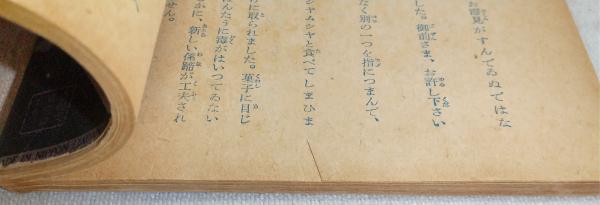 お毒見がすんでゐぬではな
した。御前さま、お許し下さい
なく別の一つを指につまんで、
シヤムシヤと食べてしまひま
に取られました。菓子に目じ
んたうに毒がはいつてゐない
かに、新しい係蹄が工夫され
せん。